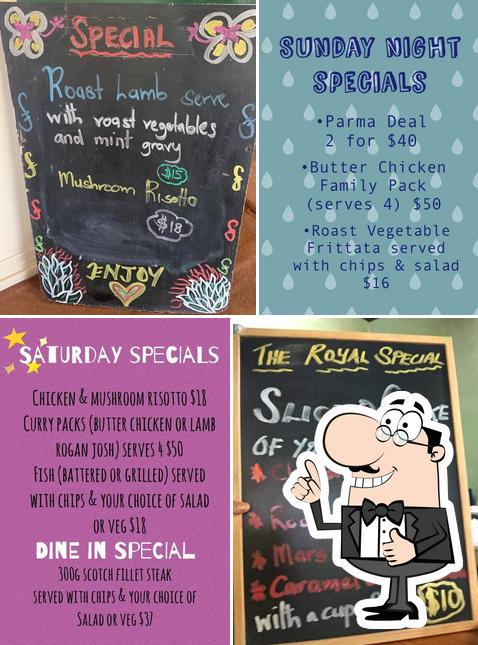 SPECIAL
Roast Lamb serve
with roast vegetables
and mint gravy
$15
Mushroom Risotto
$18
ENJOY
SUNDAY NIGHT
SPECIALS
•Parma Deal
2 for $40
•Butter Chicken
Family Pack
(serves 4) $50
•Roast Vegetable
Frittata served
with chips & salad
$16
SATURDAY SPECIALS
CHICKEN & MUSHROOM RISOTTO $18
CURRY PACKS (BUTTER CHICKEN OR LAMB
ROGAN JOSH) SERVES 4 $50
FISH (BATTERED OR GRILLED) SERVED
WITH CHIPS & YOUR CHOICE OF SALAD
OR VEG $18
DINE IN SPECIAL
300G SCOTCH FILLET STEAK
SERVED WITH CHIPS & YOUR CHOICE OF
SALAD OR VEG $37
THE ROYAL SPECIAL
OF
Mars
Caramel
with a cup
$10